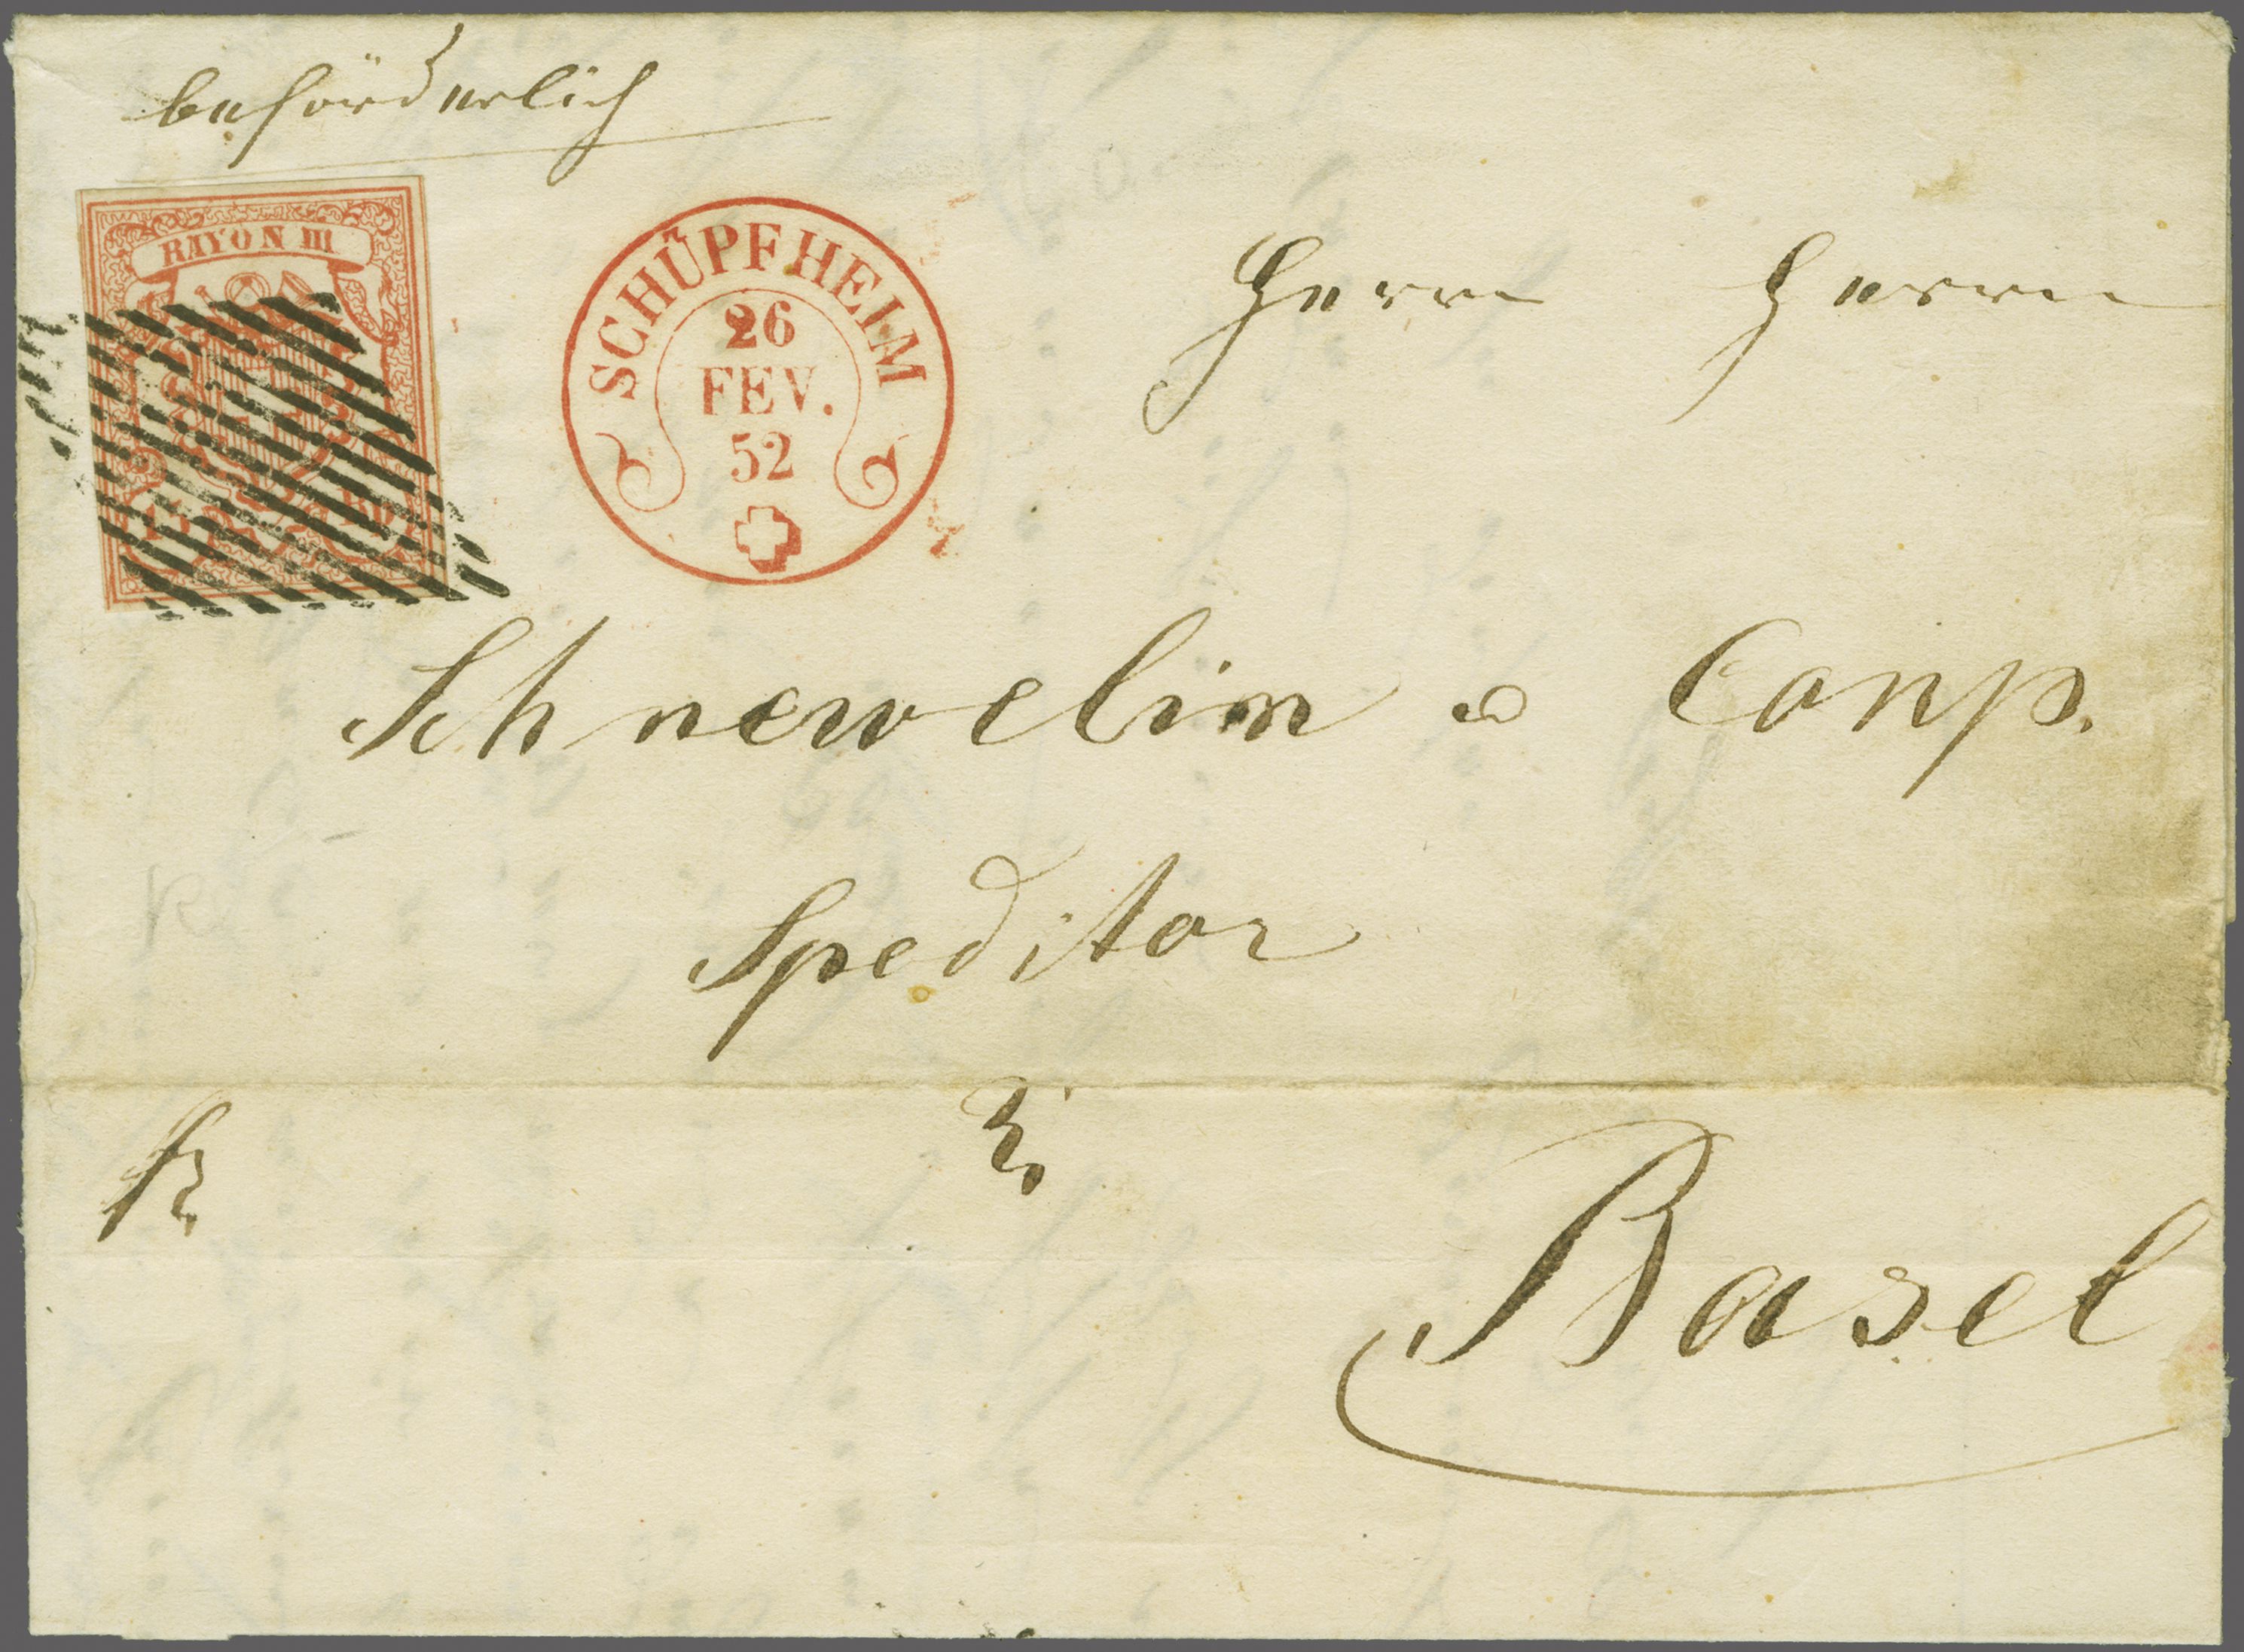 beförderlich
RAYON III
SCHÜPFHEIM
26
FEV.
52
Herrn Herrn
Schnewelin & Conp.
Speditor
fr.
in
Basel